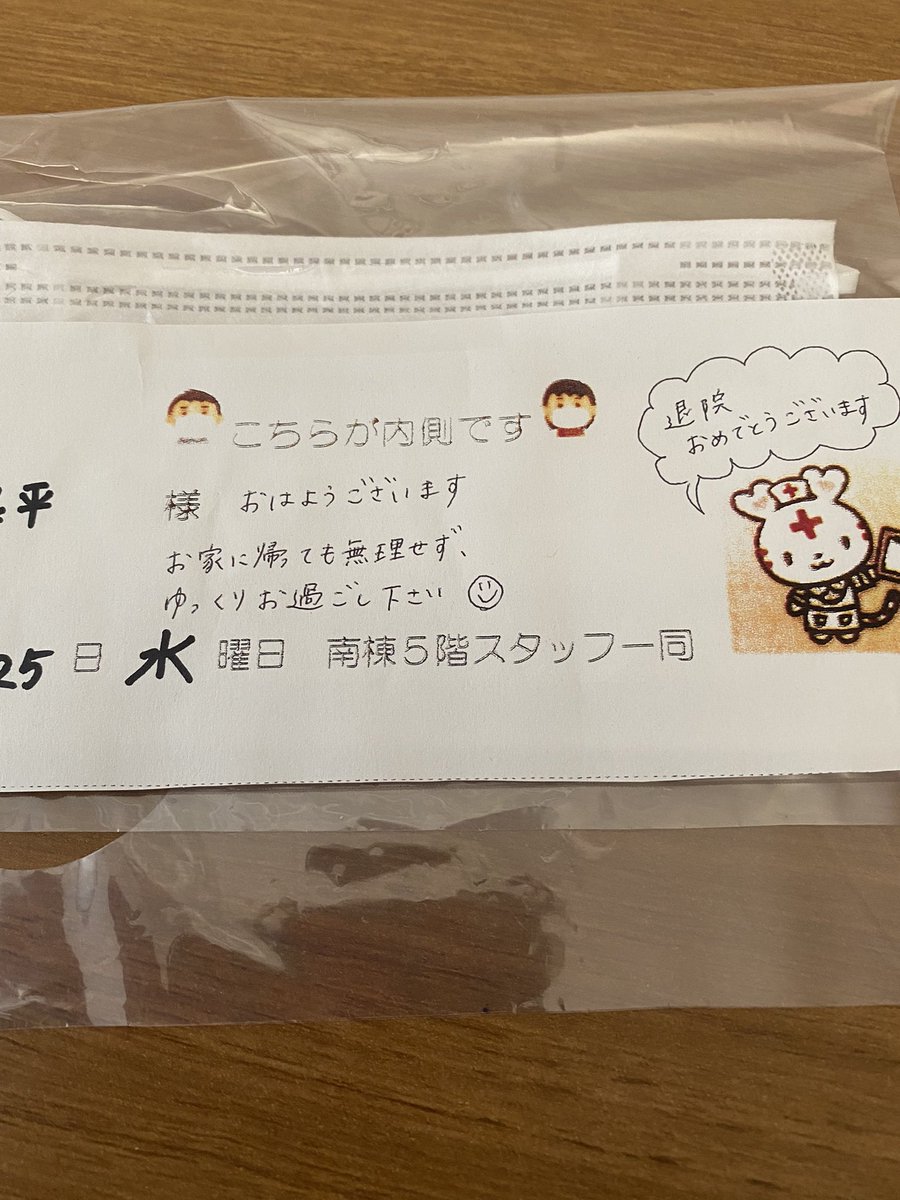 こちらが内側です
退院
おめでとうございます
平 様 おはようございます
お家に帰っても無理せず、
ゆっくりお過ごし下さい
25日 水曜日 南棟5階スタッフ一同